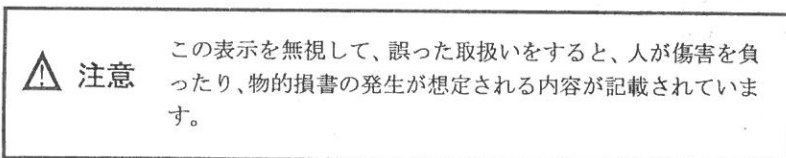 この表示を無視して、誤った取扱いをすると、人が傷害を負
⚠ 注意
ったり、物的損書の発生が想定される内容が記載されていま
す。